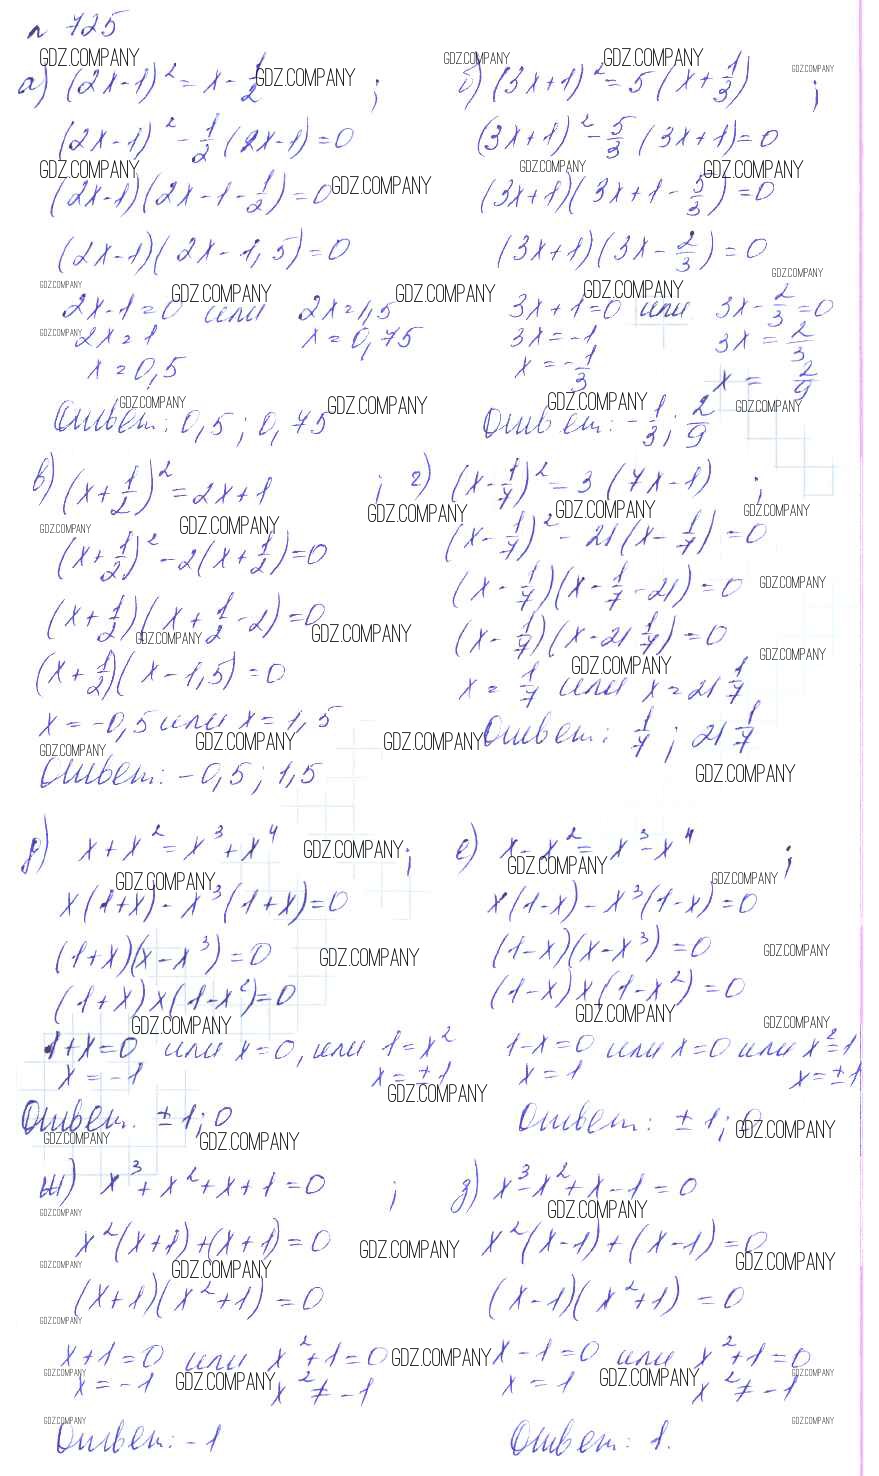 № 725
а) (2x-1)² = x - 1/2 ;
(2x-1)² - 1/2 (2x-1) = 0
(2x-1)(2x-1-1/2) = 0
(2x-1)(2x-1,5) = 0
2x-1=0 или 2x=1,5
2x=1 x=0,75
x=0,5
Ответ: 0,5; 0,75
б) (3x+1)² = 5(x+1/3) ;
(3x+1)² - 5/3 (3x+1) = 0
(3x+1)(3x+1-5/3) = 0
(3x+1)(3x-2/3) = 0
3x+1=0 или 3x-2/3=0
3x=-1 3x=2/3
x=-1/3 x=2/9
Ответ: -1/3; 2/9
в) (x+1/2)² = 2x+1 ;
(x+1/2)² - 2(x+1/2) = 0
(x+1/2)(x+1/2-2) = 0
(x+1/2)(x-1,5) = 0
x=-0,5 или x=1,5
Ответ: -0,5; 1,5
г) (x-1/7)² = 3(7x-1) ;
(x-1/7)² - 21(x-1/7) = 0
(x-1/7)(x-1/7-21) = 0
(x-1/7)(x-21 1/7) = 0
x=1/7 или x=21 1/7
Ответ: 1/7; 21 1/7
д) x+x² = x³+x⁴ ;
x(1+x) - x³(1+x) = 0
(1+x)(x-x³) = 0
(1+x)x(1-x²) = 0
1+x=0 или x=0, или 1=x²
x=-1 x=±1
Ответ: ±1; 0
е) x-x² = x³-x⁴ ;
x(1-x) - x³(1-x) = 0
(1-x)(x-x³) = 0
(1-x)x(1-x²) = 0
1-x=0 или x=0 или x²=1
x=1 x=±1
Ответ: ±1; 0
ж) x³+x²+x+1=0 ;
x²(x+1)+(x+1)=0
(x+1)(x²+1)=0
x+1=0 или x²+1=0
x=-1 x²≠-1
Ответ: -1
з) x³-x²+x-1=0
x²(x-1)+(x-1)=0
(x-1)(x²+1)=0
x-1=0 или x²+1=0
x=1 x²≠-1
Ответ: 1.
GDZ.COMPANY